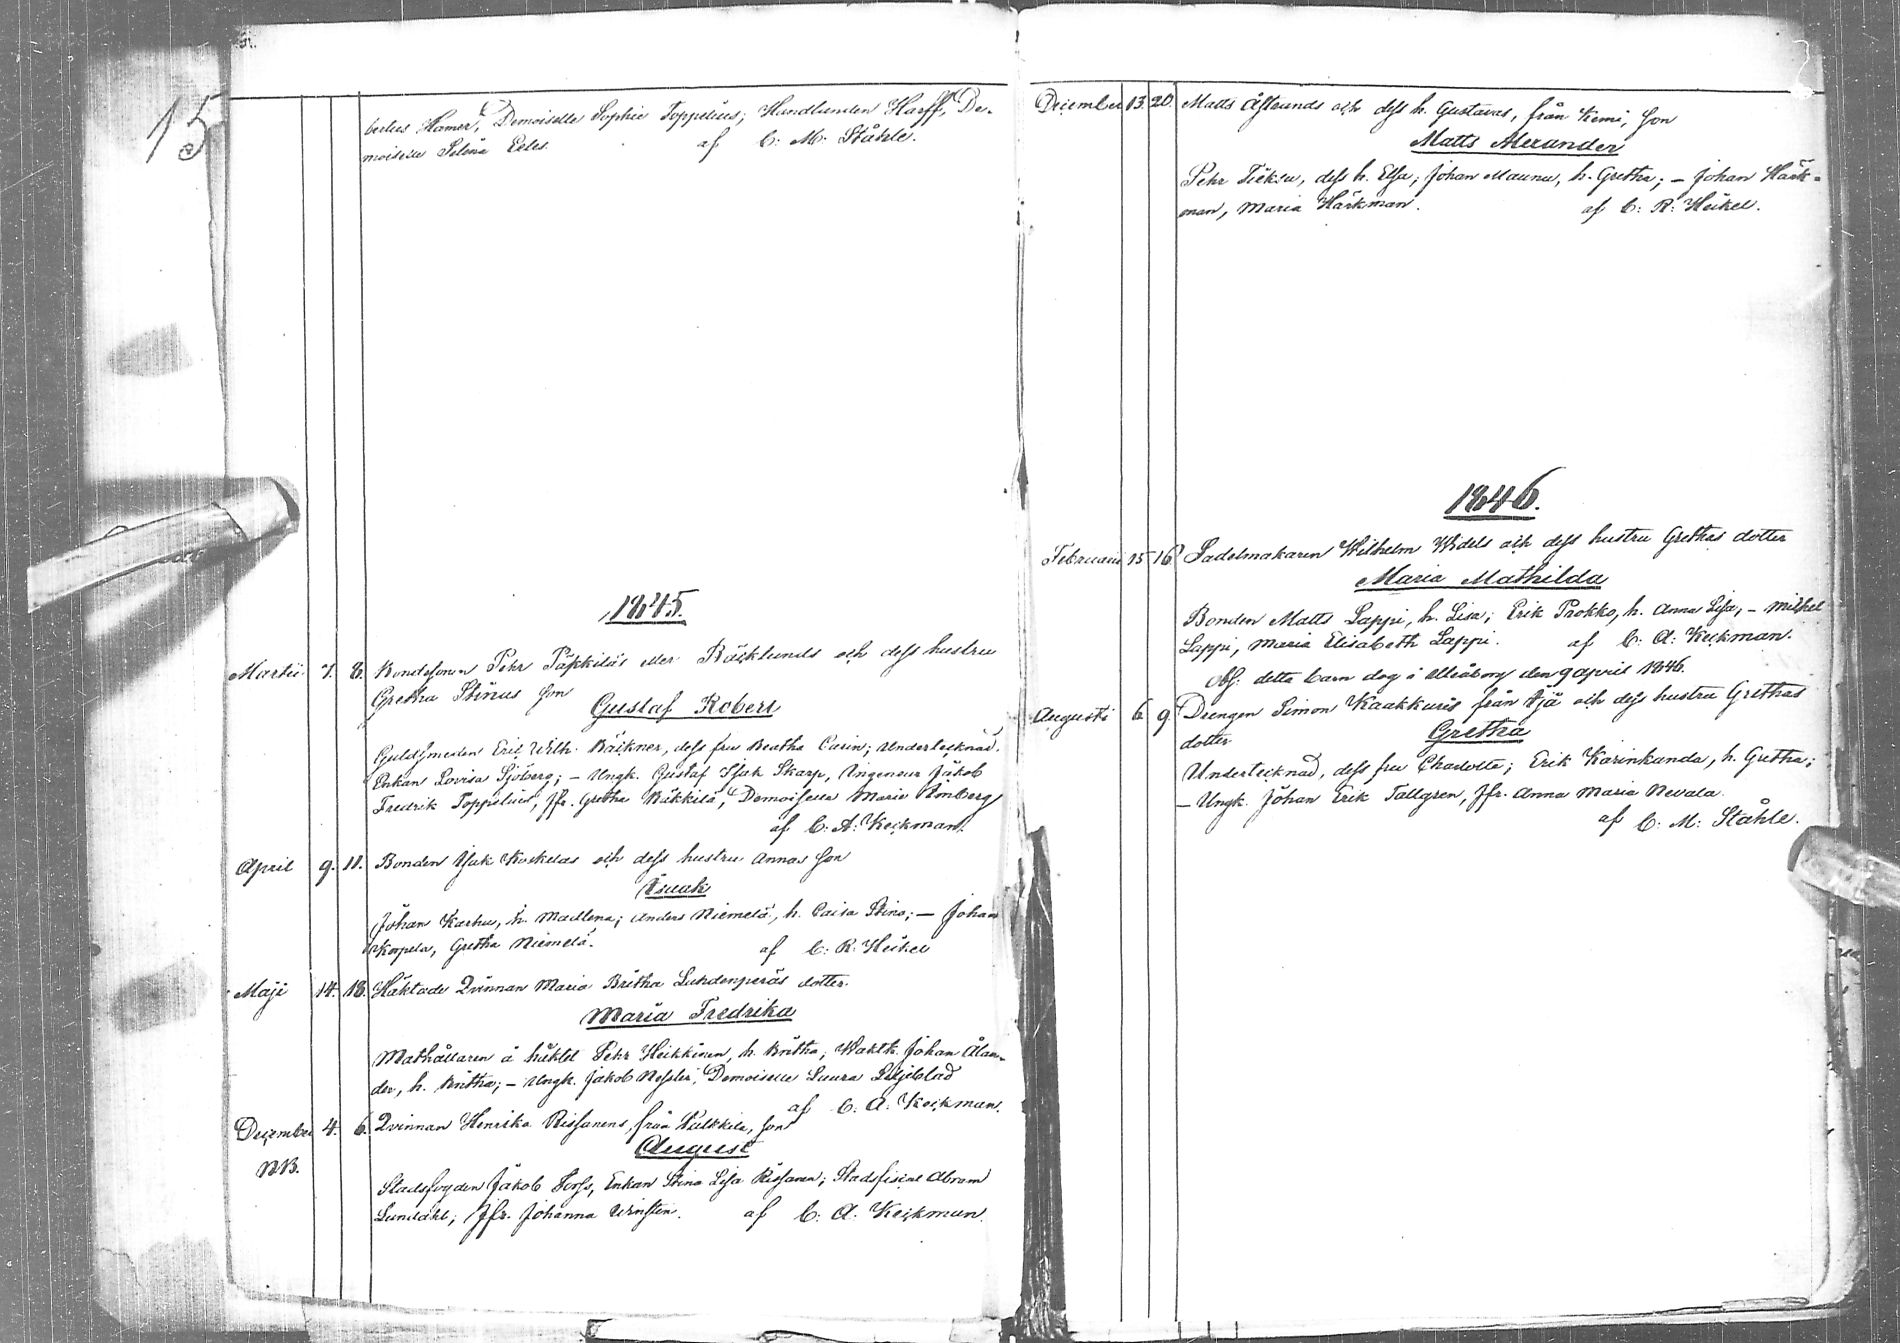 15
bertus Hamer, Demoiselle Sophie Toppelius; Handlanden Harff, De-
moiselle Selena Eeles. af C. M. Ståhle.
1845.
Martii 7. 8. Bondesonen Pehr Päkkiläs eller Bäcklunds och dess hustru
Gretha Stinas son
Gustaf Robert
Guldsmeden Eric Wilh. Bäckner, dess fru Beatha Carin; Undertecknad,
Enkan Lovisa Sjöberg; – Ungk. Gustaf Isak Skarp, Ingenieur Jakob
Fredrik Toppelius, Jfr. Gretha Päkkilä, Demoiselle Maria
af C. A. Keckman.
April 9. 11. Bonden Isak Koskelas och dess hustru Annas son
Isaak
Johan Karhu, h. Madlena; Anders Niemelä, h. Caisa Stina; – Johan
Korpela, Gretha Niemelä. af C. R. Heikel
Maji 14. 18. Häktade Qvinnan Maria Britha Luhdenperäs dotter
Maria Fredrika
Mathållaren å häktet Pehr Heikkinen, h. Britha; Waktk. Johan Ålan-
der, h. Britha; – Ungk. Jakob Nessler, Demoiselle Laura Liljeblad
af C. A. Keckman.
December 4. 6. Qvinnan Henrika Rissanens, från Pulkkila, son
NB. August
Stadsfogden Jakob Forss, Enkan Stina Lisa Rissanen; Stadsfiscal Abram
Lundahl; Jfr. Johanna af C. A. Keckman.
December 13. 20. Matts Åstrands och dess h. Gustavas, från Kemi, son
Matts Alexander
Pehr dess h. Elsa; Johan Maunu, h. Gretha; – Johan Härk-
man, Maria Härkman. af C. R. Heikel.
1846.
Februarii 15 16. Sadelmakaren Wilhelm Widels och dess hustru Grethas dotter
Maria Mathilda
Bonden Matts Lappi, h. Lisa; Erik Prokko, h. Anna Lisa; – Mikkel
Lappi, Maria Elisabeth Lappi. af C. A. Keckman.
Obs. detta barn dog i Uleåborg den 9 april 1846.
Augusti 6. 9. Drengen Simon Kaakkuris från Ijå och dess hustru Grethas
dotter Gretha
Undertecknad, dess fru Charlotta; Erik Karinkanda, h. Gretha;
– Ungk. Johan Erik Tallgren, Jfr. Anna Maria Nevala.
af C. M. Ståhle.